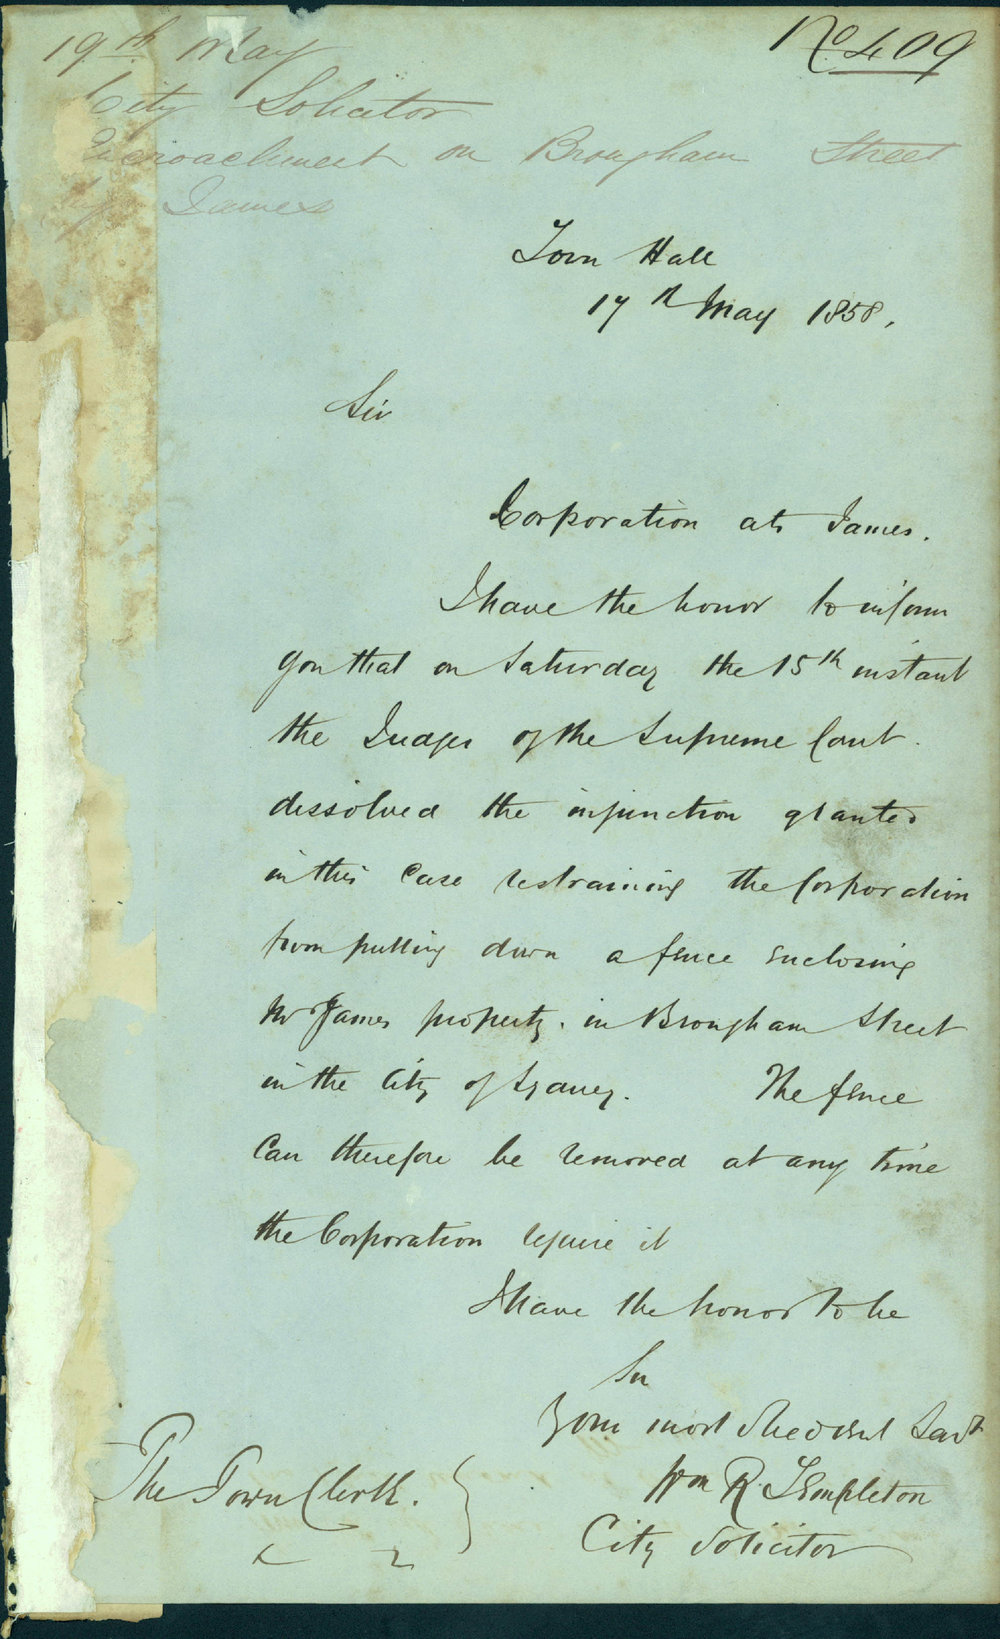 No 409
19th May
City Solicitor
Encroachment on Brougham Street
by James
Town Hall
17th May 1858.
Sir
Corporation ats James.
I have the honor to inform
you that on Saturday the 15th instant
the Judges of the Supreme Court
dissolved the injunction granted
in this case restraining the Corporation
from pulling down a fence enclosing
Mr James property in Brougham Street
in the City of Sydney. The fence
can therefore be removed at any time
the Corporation require it
I have the honor to be
Sir
Your most obedient Servt
Wm R. Templeton
City Solicitor
The Town Clerk.